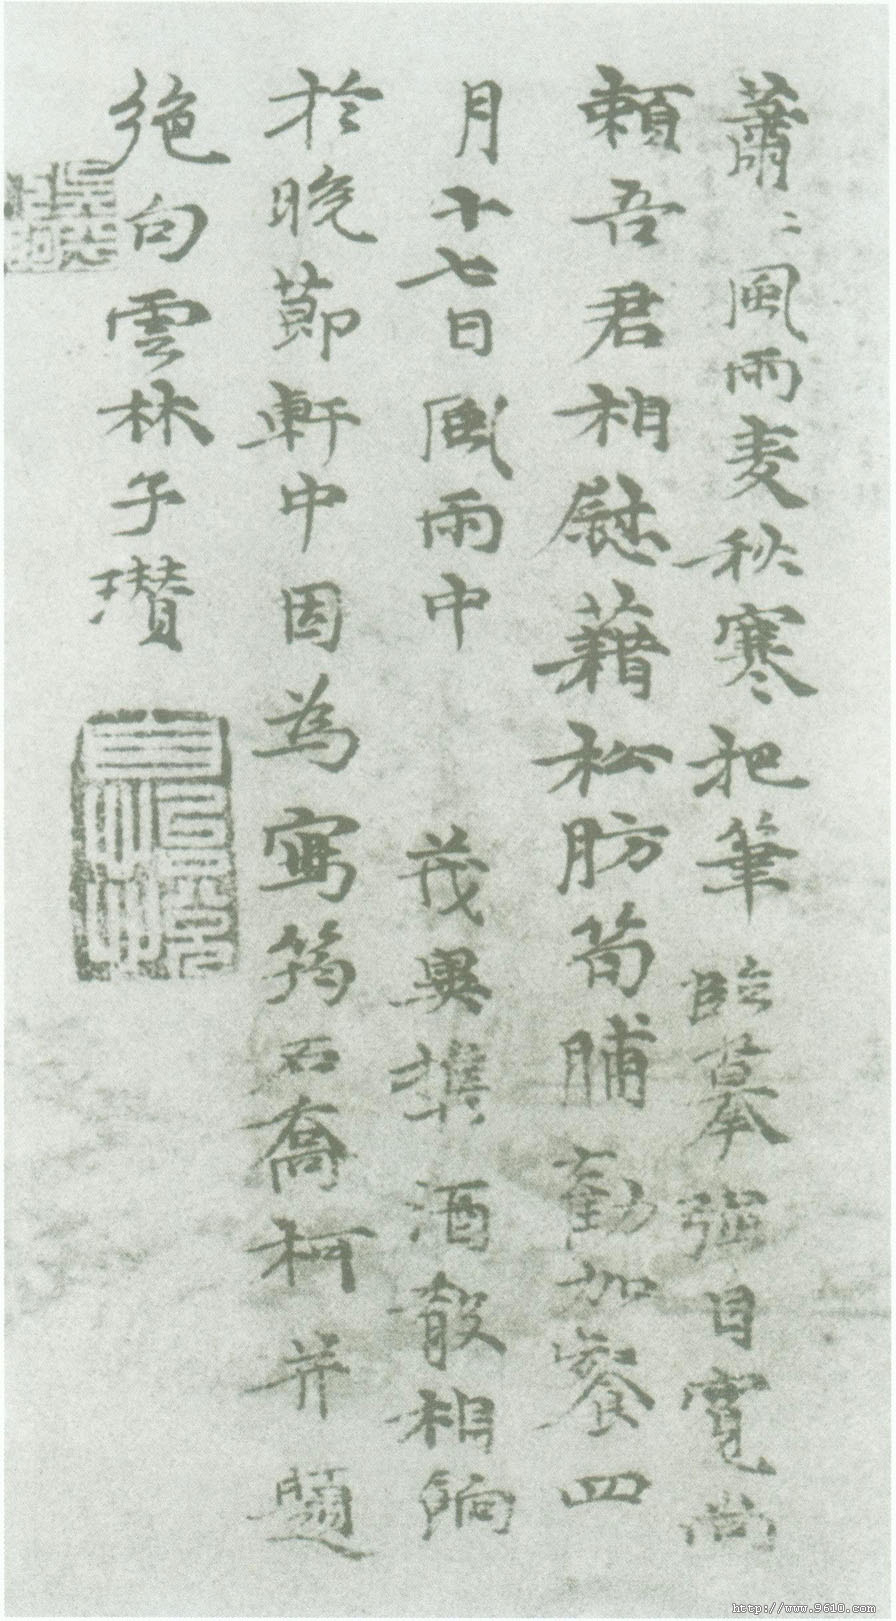 蕭〻風雨麦秋寒把筆臨摹強自寬尚
賴吾君相慰藉松肪筍脯勸加餐四
月十七日風雨中 茂異攜酒殽相餉
於晩莭軒中因為寫筠石喬柯并題
絶句雲林子瓚
http://www.9610.com